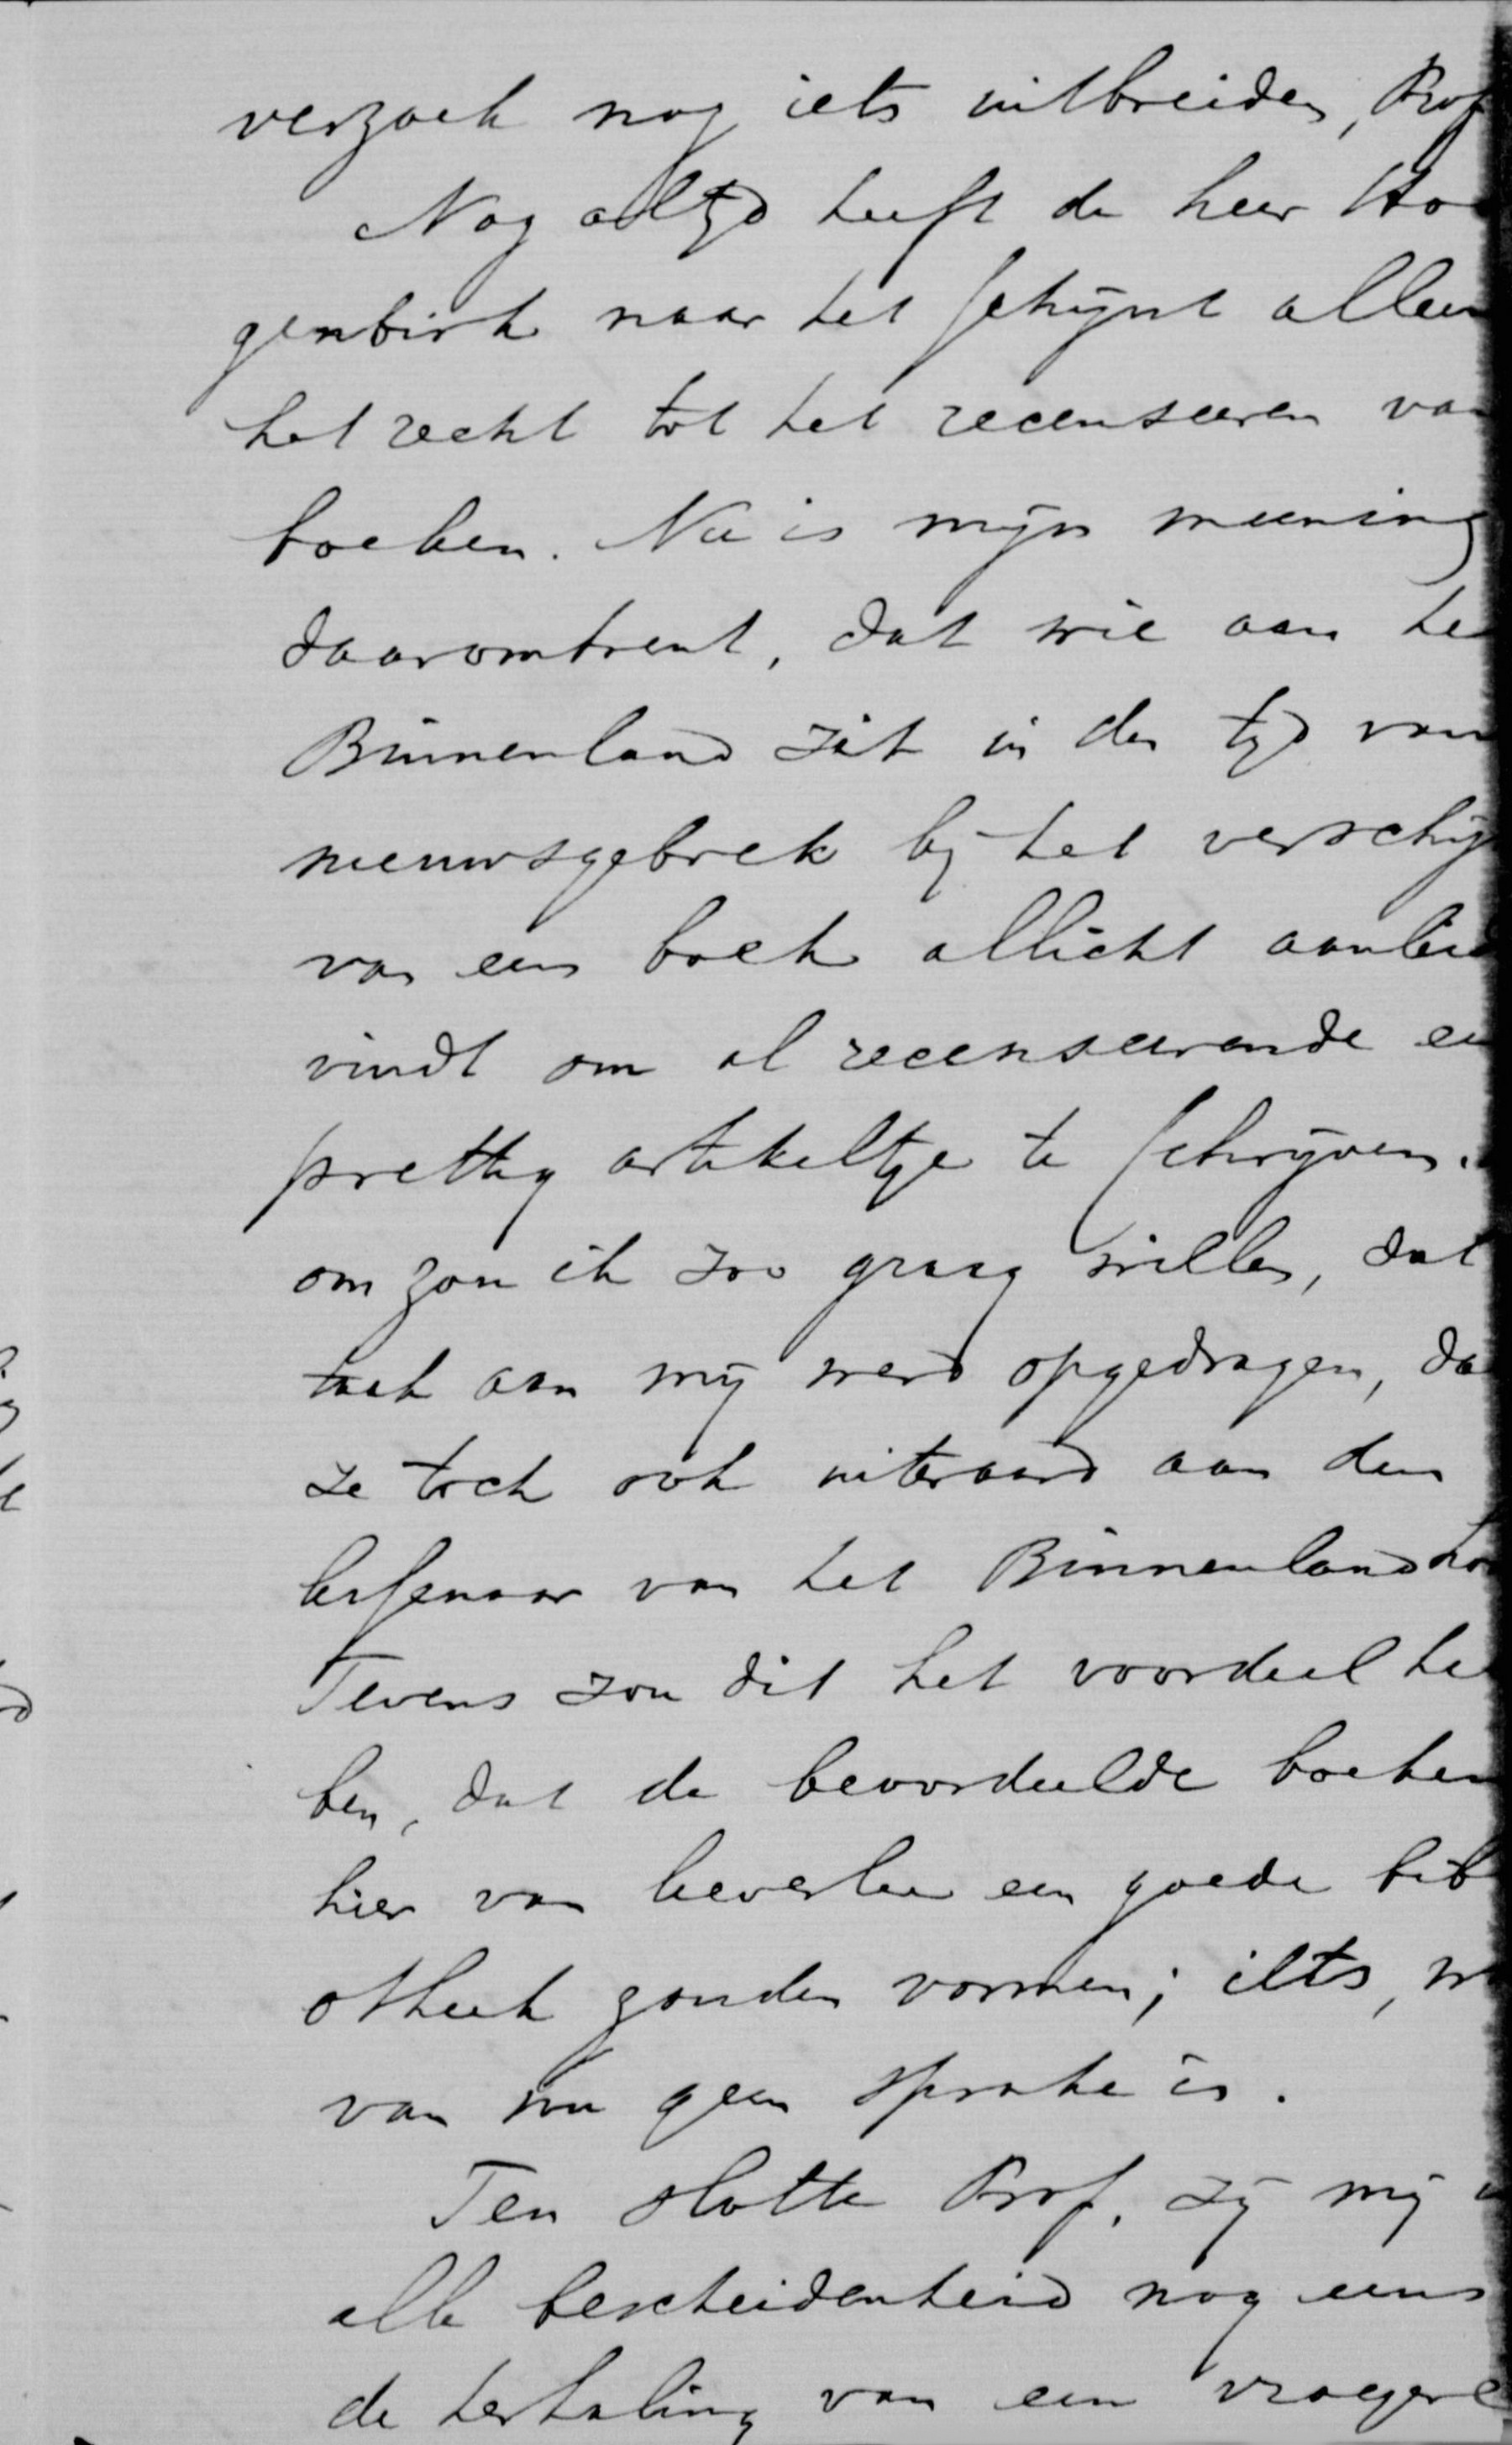 verzoek nog iets uitbreiden, Prof
Nog altijd heeft de heer Ho
genbirk naar het schijnt alleen
het recht tot het recenseeren van
boeken. Nu is mijn meening
daaromtrent, dat wie aan he
Binnenland zit in den tijd van
nieuwsgebrek bij het verschij
van een boek allicht aanleid
vindt om al recenseerende ee
prettig artikeltje te schrijven.
om zou ik zoo graag willen, dat
taak aan mij werd opgedragen, da
ze toch ook uiteraard aan den
van het Binnenland ho
Tevens zou dit het voordeel he
ben, dat de beoordeelde boeken
hier van lieverlee een goede bib
otheek zouden vormen; iets, w
van nu geen sprake is.
Ten slotte Prof. zij mij
alle bescheidenheid nog eens
de herhaling van een vroegere